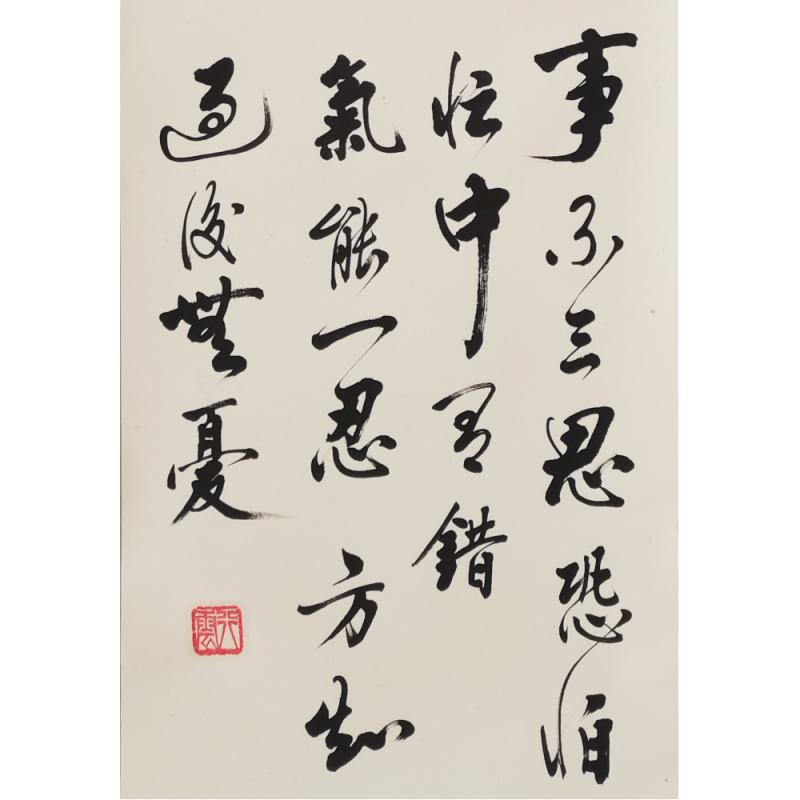 事不三思恐怕
忙中有錯
氣能一忍方知
過後無憂
行雲